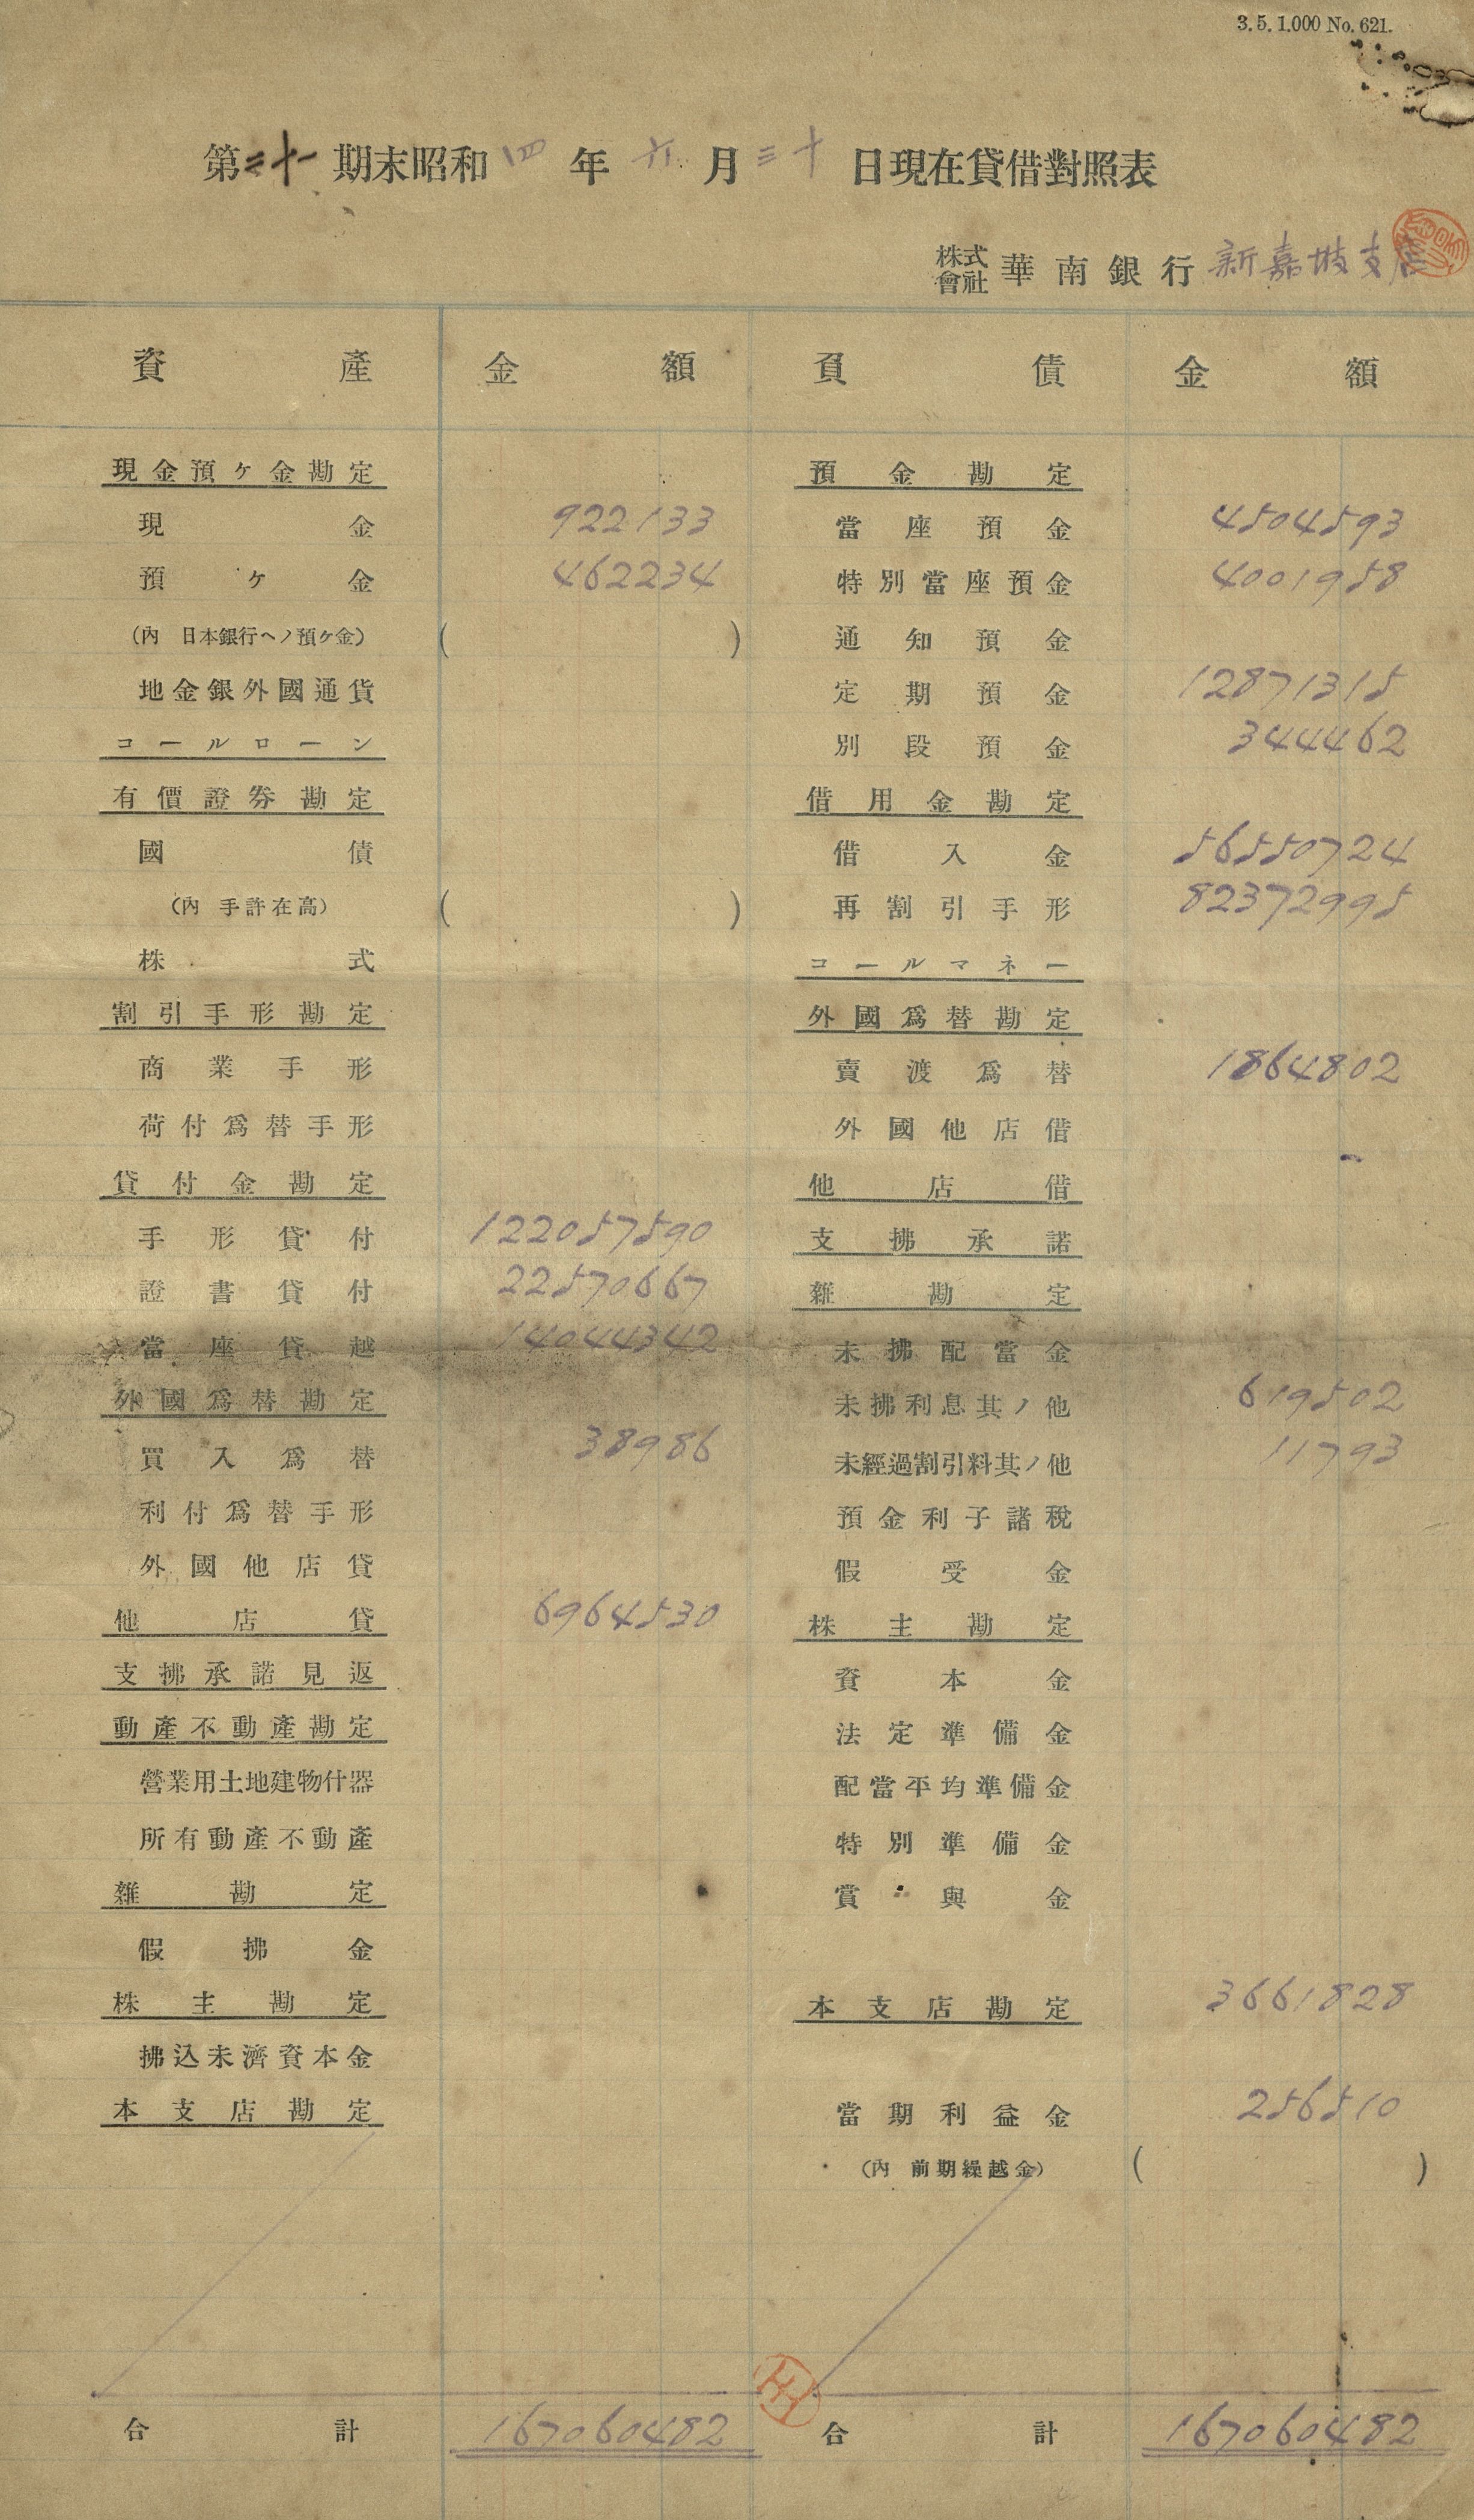 3.5.1.000 No.621.
第二十一期末昭和四年六月三十日現在貸借對照表
株式會社 華南銀行 新嘉坡支店
資產 金額 負債 金額
現金預ケ金勘定 預金勘定
現金 922133 當座預金 4504593
預ケ金 462234 特別當座預金 4001958
(內 日本銀行ヘノ預ケ金) ( ) 通知預金
地金銀外國通貨 定期預金 12871315
コールローン 別段預金 344462
有價證券勘定 借用金勘定
國債 借入金 56550724
(內 手許在高) ( ) 再割引手形 82372995
株式 コールマネー
割引手形勘定 外國爲替勘定
商業手形 賣渡爲替 1864802
荷付爲替手形 外國他店借
貸付金勘定 他店借
手形貸付 122057590 支拂承諾
證書貸付 22570667 雜勘定
當座貸越 14044342 未拂配當金
外國爲替勘定 未拂利息其ノ他 619502
買入爲替 38986 未經過割引料其ノ他 11793
利付爲替手形 預金利子諸稅
外國他店貸 假受金
他店貸 6964530 株主勘定
支拂承諾見返 資本金
動產不動產勘定 法定準備金
營業用土地建物什器 配當平均準備金
所有動產不動產 特別準備金
雜勘定 賞與金
假拂金
株主勘定 本支店勘定 3661828
拂込未濟資本金
本支店勘定 當期利益金 256510
(內 前期繰越金) ( )
合計 167060482 合計 167060482